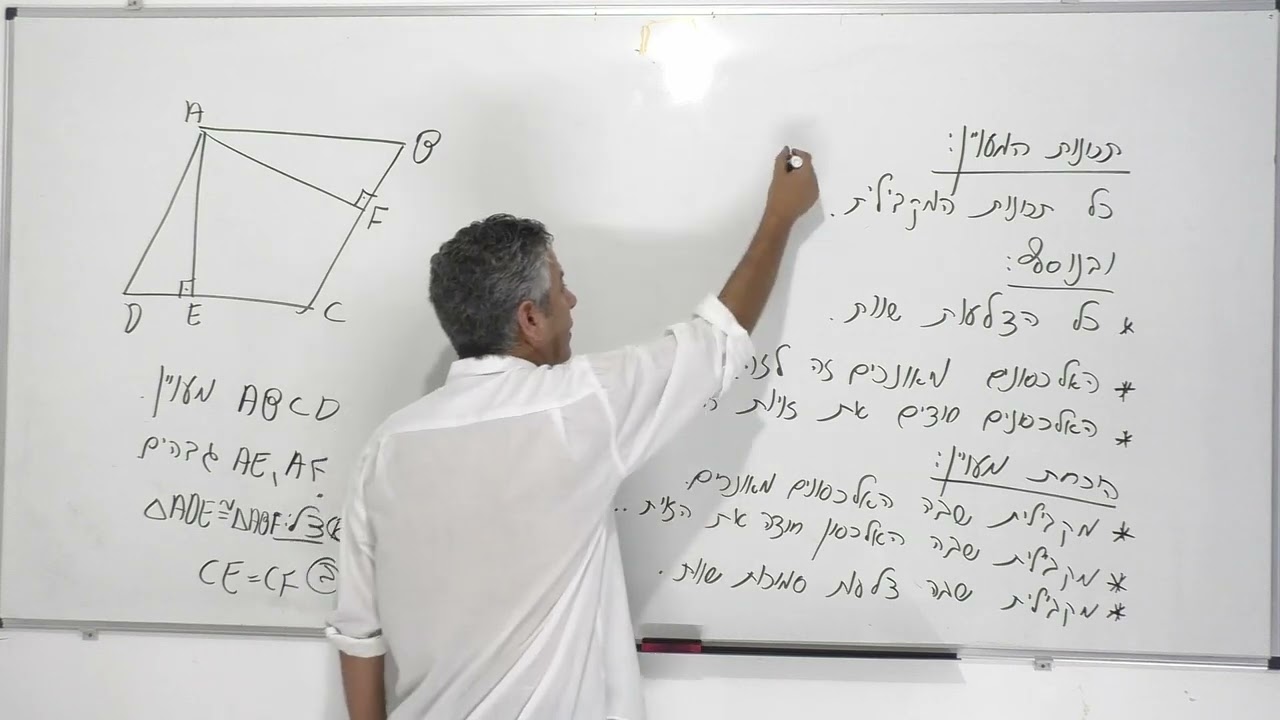 תכונות המעוין:
כל תכונות המקבילית.
ובנוסף:
* כל הצלעות שוות.
* האלכסונים מאונכים זה לזה.
* האלכסונים חוצים את זויות ה
הוכחת מעוין:
* מקבילית שבה האלכסונים מאונכים.
* מקבילית שבה האלכסון חוצה את הזוית..
* מקבילית שבה צלעות סמוכות שוות.
A
B
F
D
E
C
ABCD מעוין.
AE, AF גבהים
צ"ל: △ADE≅△ABF
② CE=CF